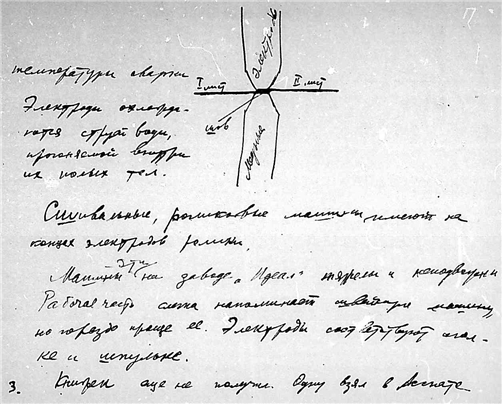 17
температуры сварки
Электроды охлаждаются
струей воды,
прогоняемой внутри
их полых тел.
электрод
I лист
II лист
шов
Машина
Сшивальные, роликовые машины имеют на
концах электродов ролики.
Машины эти на заводе „Идеал" тяжелы и неподвижны
Рабочая часть слегка напоминает швейную машину,
но гораздо проще ее. Электроды соответствуют игол-
ке и шпульке.
3. Книжек еще не получил. Одну взял в